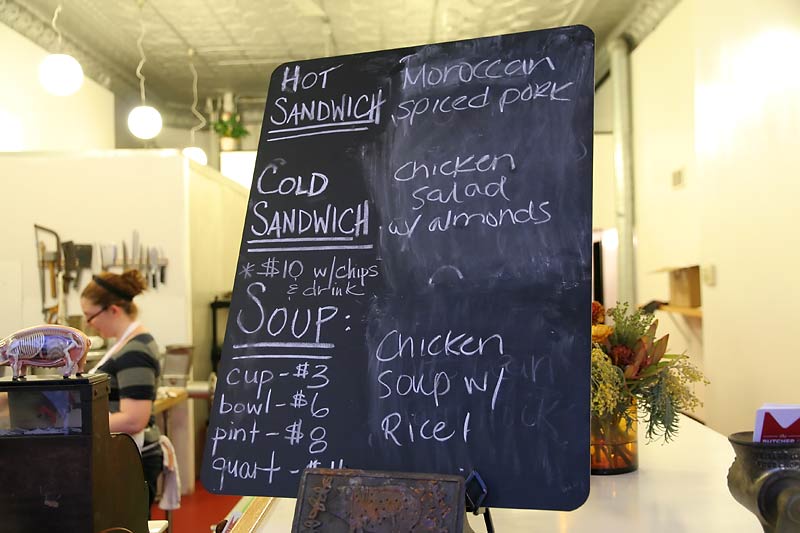 HOT
SANDWICH
Moroccan
spiced pork
COLD
SANDWICH
Chicken
salad
w/ almonds
*$10 w/chips
& drink
SOUP:
cup - $3
bowl - $6
pint - $8
quart -
Chicken
Soup w/
Rice!
BUTCHER